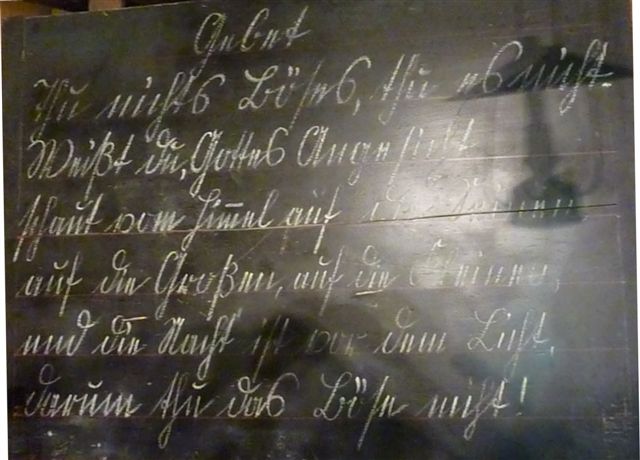 Gebet
Thu nichts Böses, thu es nicht.
Weißt du, Gottes Angesicht
schaut vom Him̄el auf die
auf die Großen, auf die Kleinen,
und die Nacht ist vor dem Licht,
darum thu das Böse nicht!